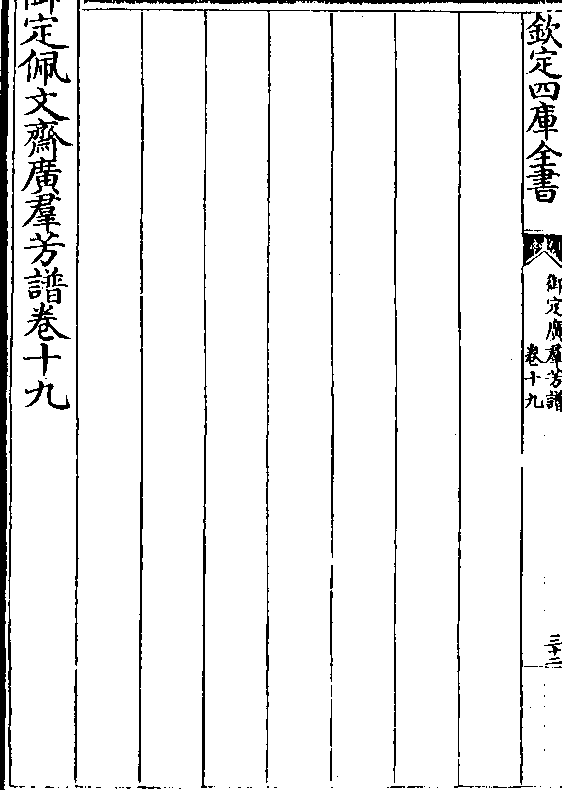 欽定四庫全書
御定廣羣芳譜
卷十九
三十二
御定佩文齋廣羣芳譜卷十九